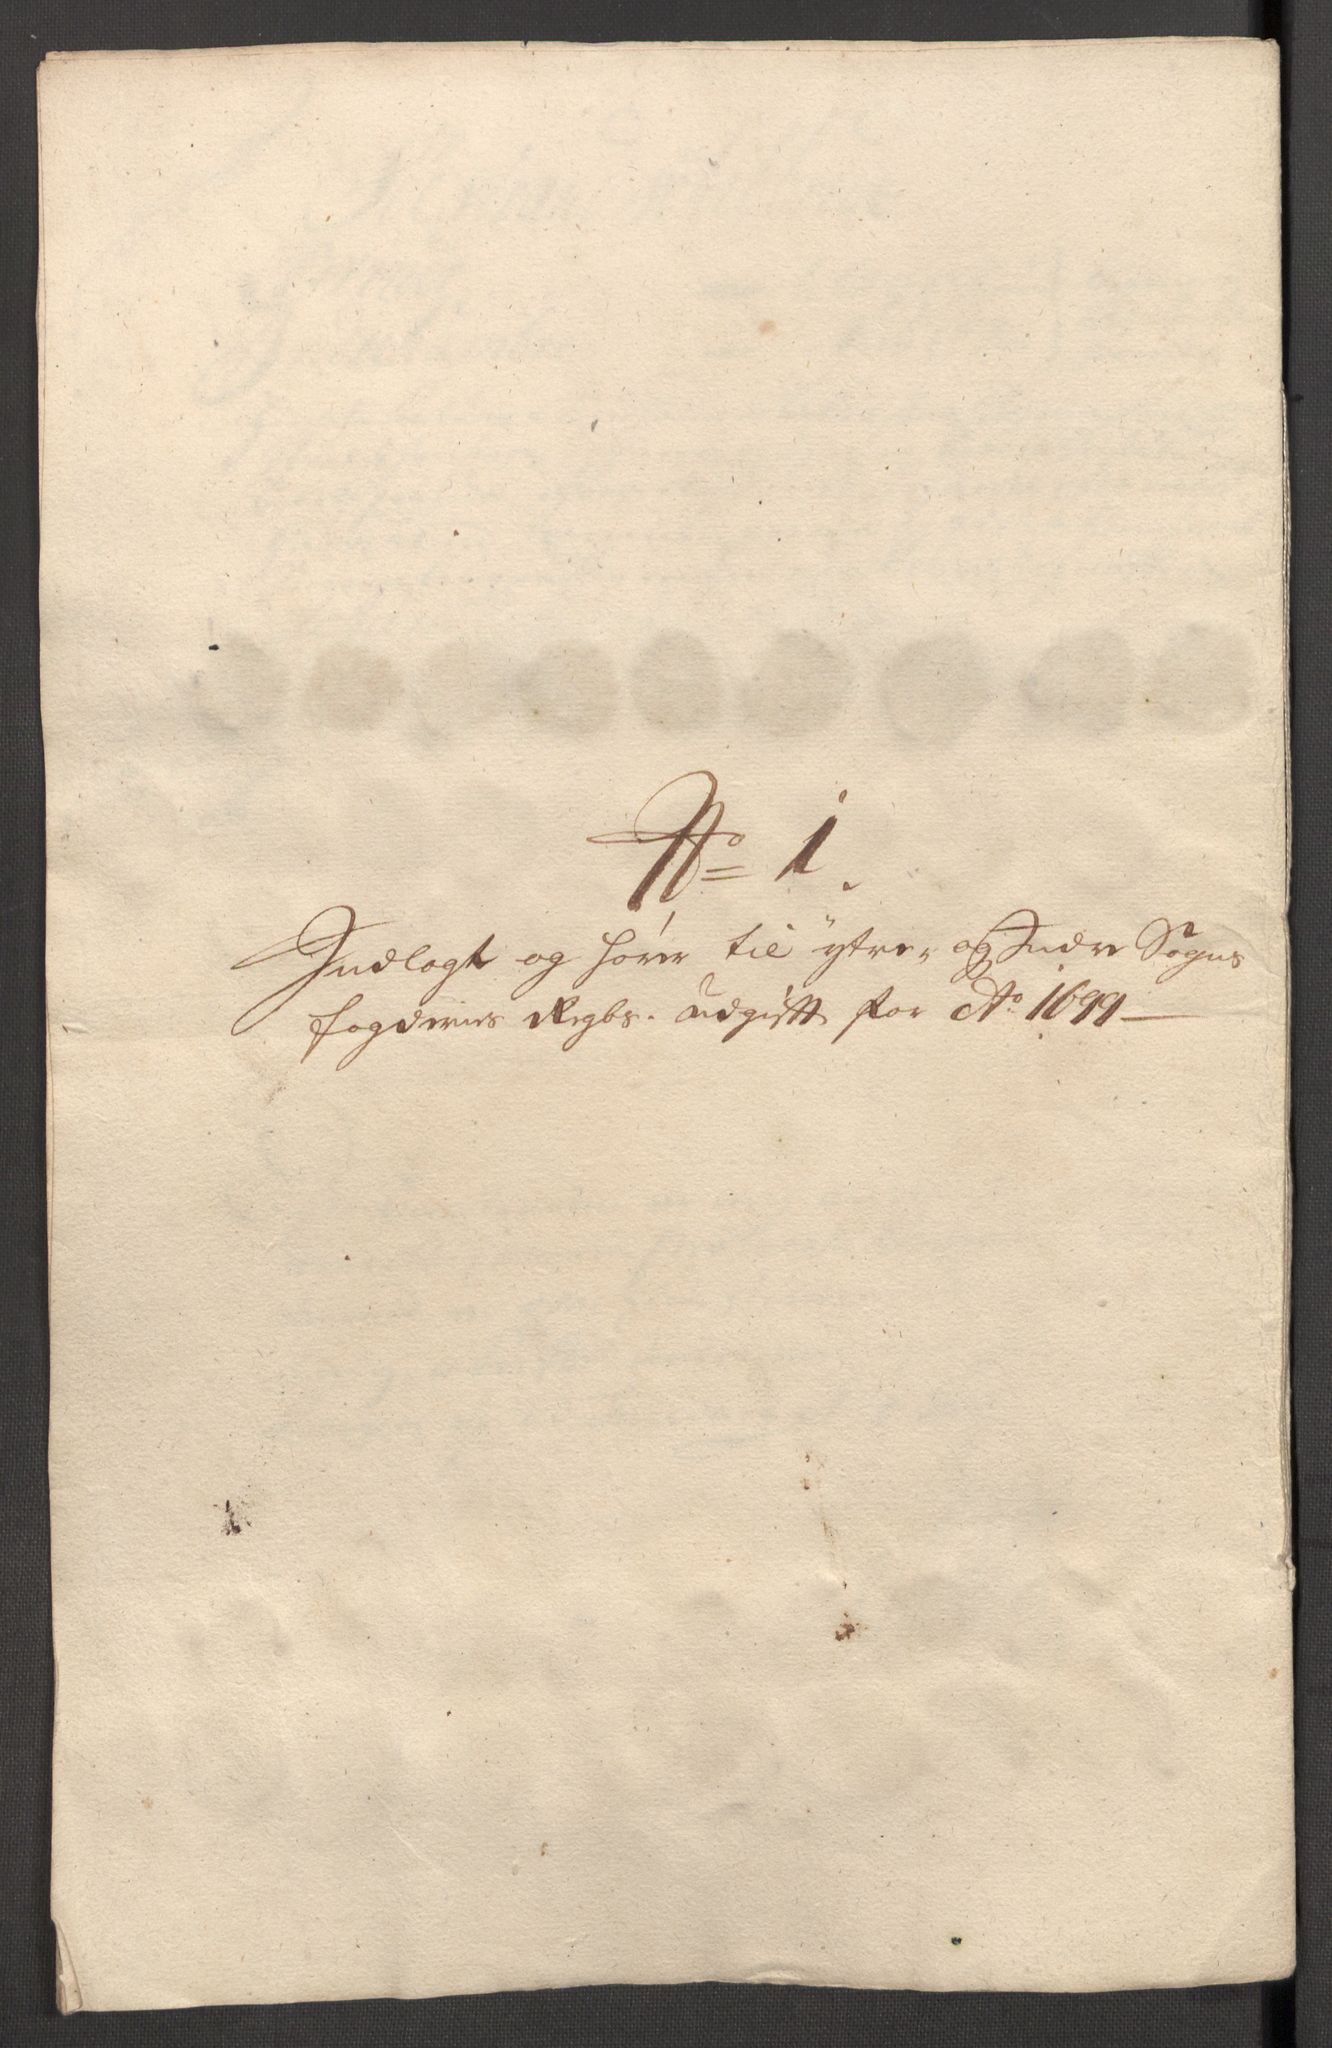 No= 1.
Indlagt og hører til ÿtre, og Indre Sogns
fogderies Regbs. udgifft for Ao 1699